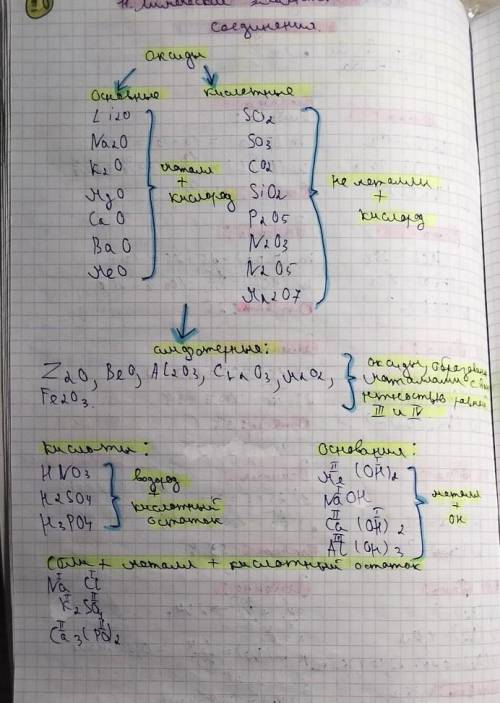 соединения.
Оксиды
Основные Кислотные
Li2O
Na2O
K2O
MgO
CaO
BaO
MeO
металл
+
кислород
SO2
SO3
CO2
SiO2
P2O5
N2O3
N2O5
Mn2O7
не металлы
+
кислород
амфотерные:
ZnO, BeO, Al2O3, Cr2O3, MnO2,
Fe2O3.
оксиды,
металлами с
III и IV
Кислоты:
HNO3
H2SO4
H3PO4
водород
+
кислотный
остаток
Основания:
II I
Me (OH)2
I
NaOH
II I
Ca (OH)2
Al (OH)3
металл
+
OH
Соли + металл + кислотный остаток
I I
Na Cl
I II
K2SO4
II
Ca3(PO4)2